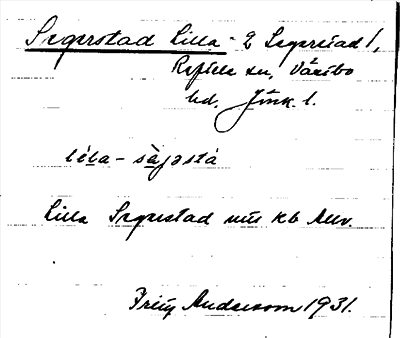 Segerstad Lilla - 2 Segerstad /,
Reftele sn, Västbo
hd, Jönk. l.
lɩ́la - sàjəstá
Lilla Segerstad mss Kb Allv.
Fritz Andersson 1931.